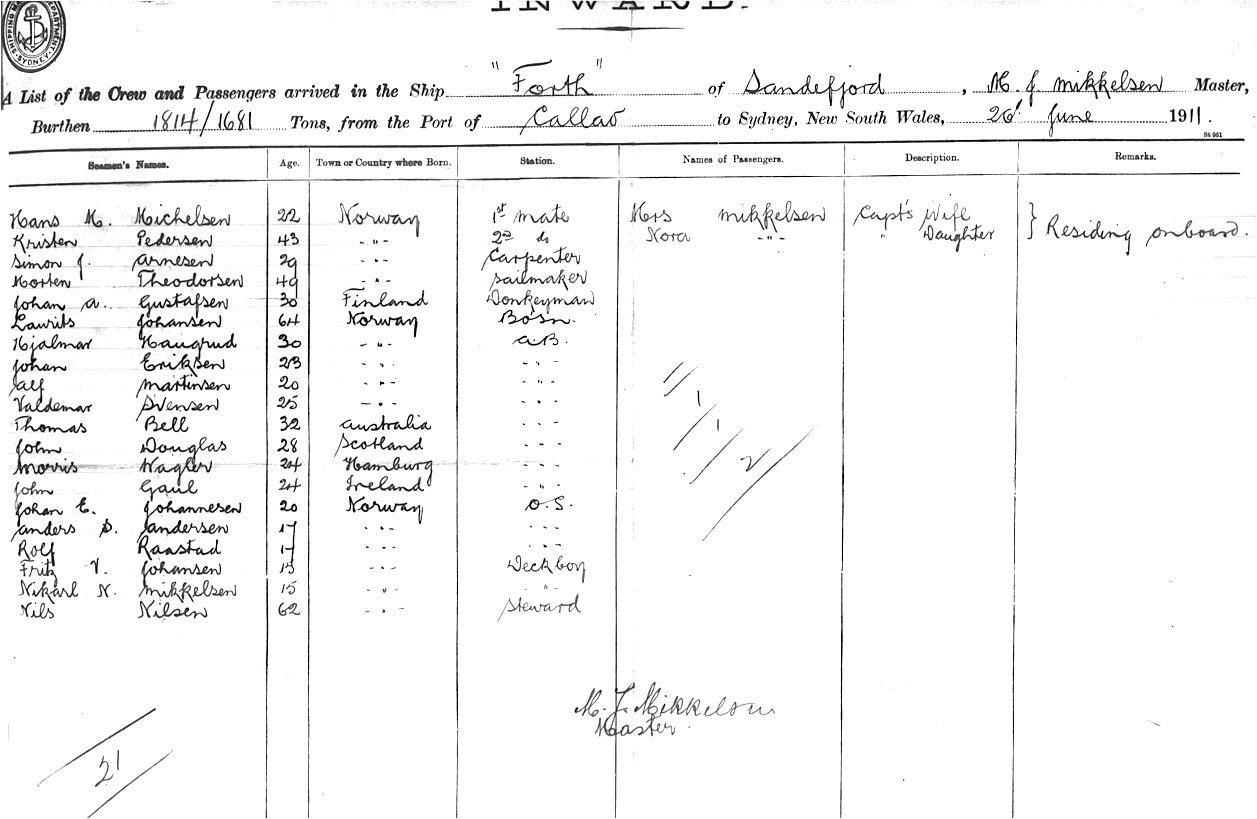 INWARD.
SHIPPING MASTER'S DEPARTMENT. SYDNEY
A List of the Crew and Passengers arrived in the Ship "Forth" of Sandefjord, M. J. Mikkelsen Master,
Burthen 1814/1681 Tons, from the Port of Callao to Sydney, New South Wales, 26' June 1911.
St 951
Seamen's Names. Age. Town or Country where Born. Station. Names of Passengers. Description. Remarks.
Hans M. Michelsen 22 Norway 1st mate Mrs Mikkelsen Capt's Wife
Kristen Pedersen 43 - " - 2nd do Nora - " - " Daughter } Residing onboard.
Simon J. Arnesen 29 - " - Carpenter
Morten Theodorsen 49 - " - Sailmaker
Johan A. Gustafsen 30 Finland Donkeyman
Laurits Johansen 64 Norway Bosn.
Hjalmar Haugrud 30 - " - A.B.
Johan Eriksen 23 - " - - " -
Alf Martinsen 20 - " - - " -
Valdemar Svensen 25 - " - - " -
Thomas Bell 32 Australia - " -
John Douglas 28 Scotland - " -
Morris Wagler 24 Hamburg - " -
John Gaul 24 Ireland - " -
Johan E. Johannesen 20 Norway O.S.
Anders S. Andersen 17 - " - - " -
Rolf Raastad 17 - " - - " -
Fritz V. Johansen 15 - " - Deckboy
Nikarl N. Mikkelsen 15 - " - - " -
Nils Nilsen 62 - " - Steward
2
M. J. Mikkelsen
Master.
21